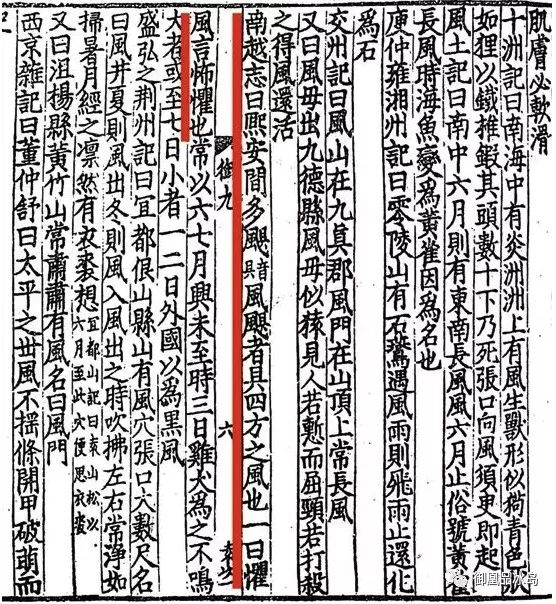 肌膚必軟滑
十洲記曰南海中有炎洲洲上有風生獸形似豹青色狀
如狸以鐵椎鍛其頭數十下乃死張口向風須臾即起
風土記曰南中六月則有東南長風風六月止俗號黃雀
長風時海魚變為黃雀因為名也
庾仲雍湘州記曰零陵山有石鷰遇風雨則飛雨止還化
為石
交州記曰風山在九真郡風門在山頂上常長風
又曰風毋出九德縣風毋似猿見人若慙而屈頸若打殺
之得風還活
南越志曰熙安間多颶音具風颶者具四方之風也一曰懼
御九 六
風言怖懼也常以六七月興未至時三日雞犬為之不鳴
大者或至七日小者一二日外國以為黑風
盛弘之荆州記曰宜都佷山縣山有風穴張口大數尺名
曰風井夏則風出冬則風入風出之時吹拂左右常淨如
掃暑月經之凛然有衣裘想宜都山記曰袁山松以六月至此穴便思衣裘
又曰沮楊縣黃竹山常肅肅有風名曰風門
西京雜記曰董仲舒曰太平之世風不搖條開甲破萌而
御凰品水岛